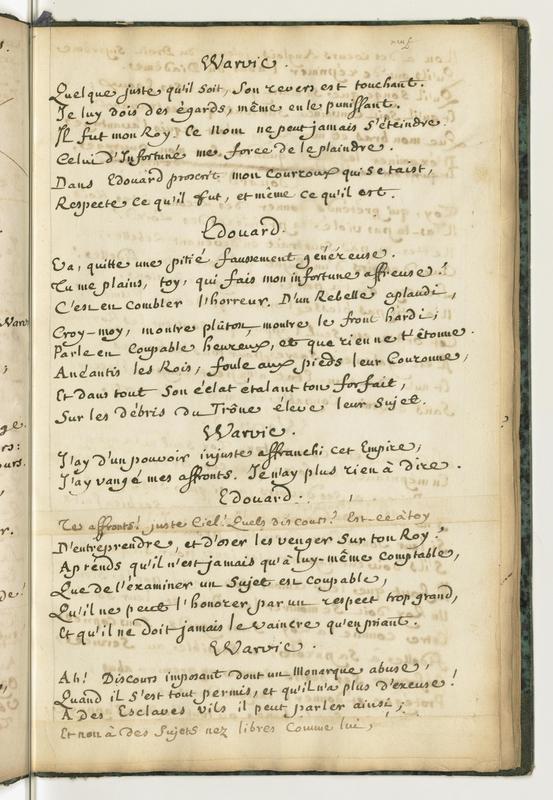 Warvic.
Quelque juste qu'il soit, Son revers est touchant.
Je luy dois des égards, même en le punissant.
Il fut mon Roy. Ce nom ne peut jamais s'éteindre.
Celui d'Infortuné me force de le plaindre.
Dans Edouard proscrit mon Courroux qui se taist,
Respecte ce qu'il fut, et même ce qu'il est.
Edouard.
Va, quitte une pitié faussement généreuse.
Tu me plains, toy, qui fais mon infortune affreuse!
C'est en Combler l'horreur. D'un Rebelle aplaudi,
Croy-moy, montre plûton, montre le front hardi;
Parle en Coupable heureux, et que rien ne t'étonne.
Anéantis les Rois, foule aux pieds leur Couronne,
Et dans tout Son éclat étalant ton forfait,
Sur les débris du Trône éleve leur Sujet.
Warvic.
J'ay d'un pouvoir injuste affranchi cet Empire;
J'ay vangé mes affronts. Je n'ay plus rien à dire.
Edouard.
Te affronts! juste Ciel! Quels discours! Est-ce à toy
D'entreprendre, et d'oser les venger Sur ton Roy?
Aprends qu'il n'est jamais qu'à luy-même Comptable,
Que de l'éxaminer un Sujet est coupable,
Qu'il ne peut l'honorer par un respect trop grand,
Et qu'il ne doit jamais le vaincre qu'en priant.
Warvic.
Ah! Discours imposant dont un Monarque abuse,
Quand il s'est tout permis, et qu'il n'a plus d'excuse!
A des Esclaves vils il peut parler ainsi;
Et non à des Sujets nez libres Comme lui,